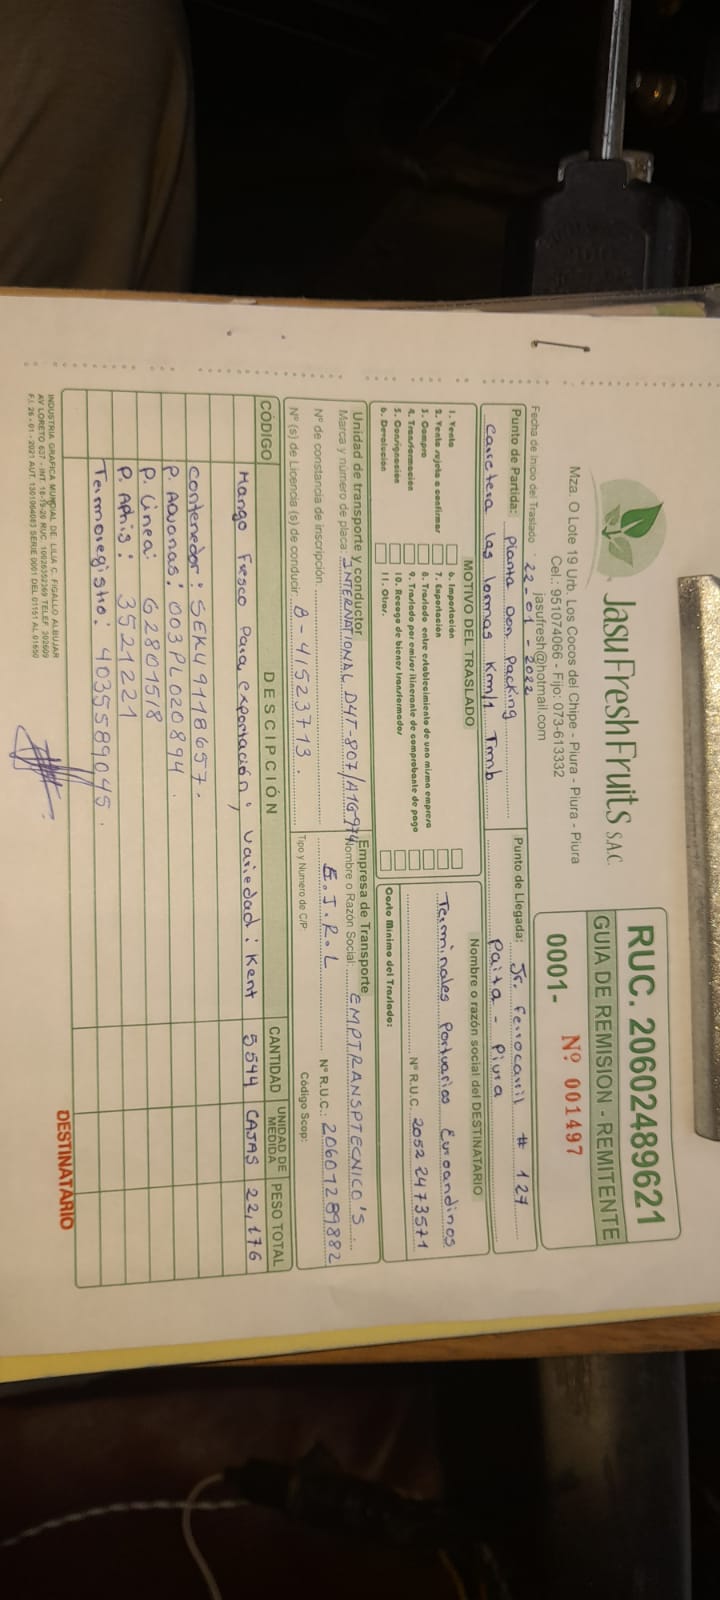 JasuFreshFruits S.A.C.
Mza. O Lote 19 Urb. Los Cocos del Chipe - Piura - Piura - Piura
Cel.: 951074066 - Fijo: 073-613332
jasufresh@hotmail.com
RUC. 20602489621
GUIA DE REMISION - REMITENTE
0001- Nº 001497
Fecha de Inicio del Traslado: 22-01-2022
Punto de Partida: Planta Don Packing
Carretera Las Lomas Km/1 Tmb
Punto de Llegada: Jr. Ferrocarril # 127
Paita - Piura
MOTIVO DEL TRASLADO
1. Venta
2. Venta sujeta a confirmar
3. Compra
4. Transformación
5. Consignación
6. Devolución
6. Importación
7. Exportación
8. Traslado entre establecimiento de una misma empresa
9. Traslado por emisor itinerante de comprobante de pago
10. Recogo de bienes transformados
11. Otros.
Nombre o razón social del DESTINATARIO
Terminales Portuarios Euroandinos
Nº R.U.C. 20522473571
Costo Mínimo del Traslado:
Unidad de transporte y conductor
Marca y número de placa: INTERNATIONAL D4T-807/A1G-974
Nº de constancia de inscripción
Nº (s) de Licencia (s) de conducir B-41523713.
Empresa de Transporte
Nombre o Razón Social: EMPTRANSPTECNICO'S
E.I.R.L Nº R.U.C.: 20601289882
Tipo y Numero de C/P: Código Scop:
CÓDIGO DESCIPCIÓN CANTIDAD UNIDAD DE MEDIDA PESO TOTAL
Mango Fresco Para exportación, variedad: Kent 5544 CAJAS 22,176
contenedor: SEKU9118657.
P. Aduanas: 003PL020894.
P. Linea: G2801518
P. Aphis: 3521221
Termoregistro: 4035589045.
INDUSTRIA GRAFICA MUNDIAL DE: LILIA C. FIGALLO ALBUJAR
AV LORETO 637 - INT. 18-19-20 RUC. 10026352369 TELEF. 302609
F.I. 26 - 01 - 2021 AUT. 1301064083 SERIE 0001 DEL 01151 AL 01650
DESTINATARIO